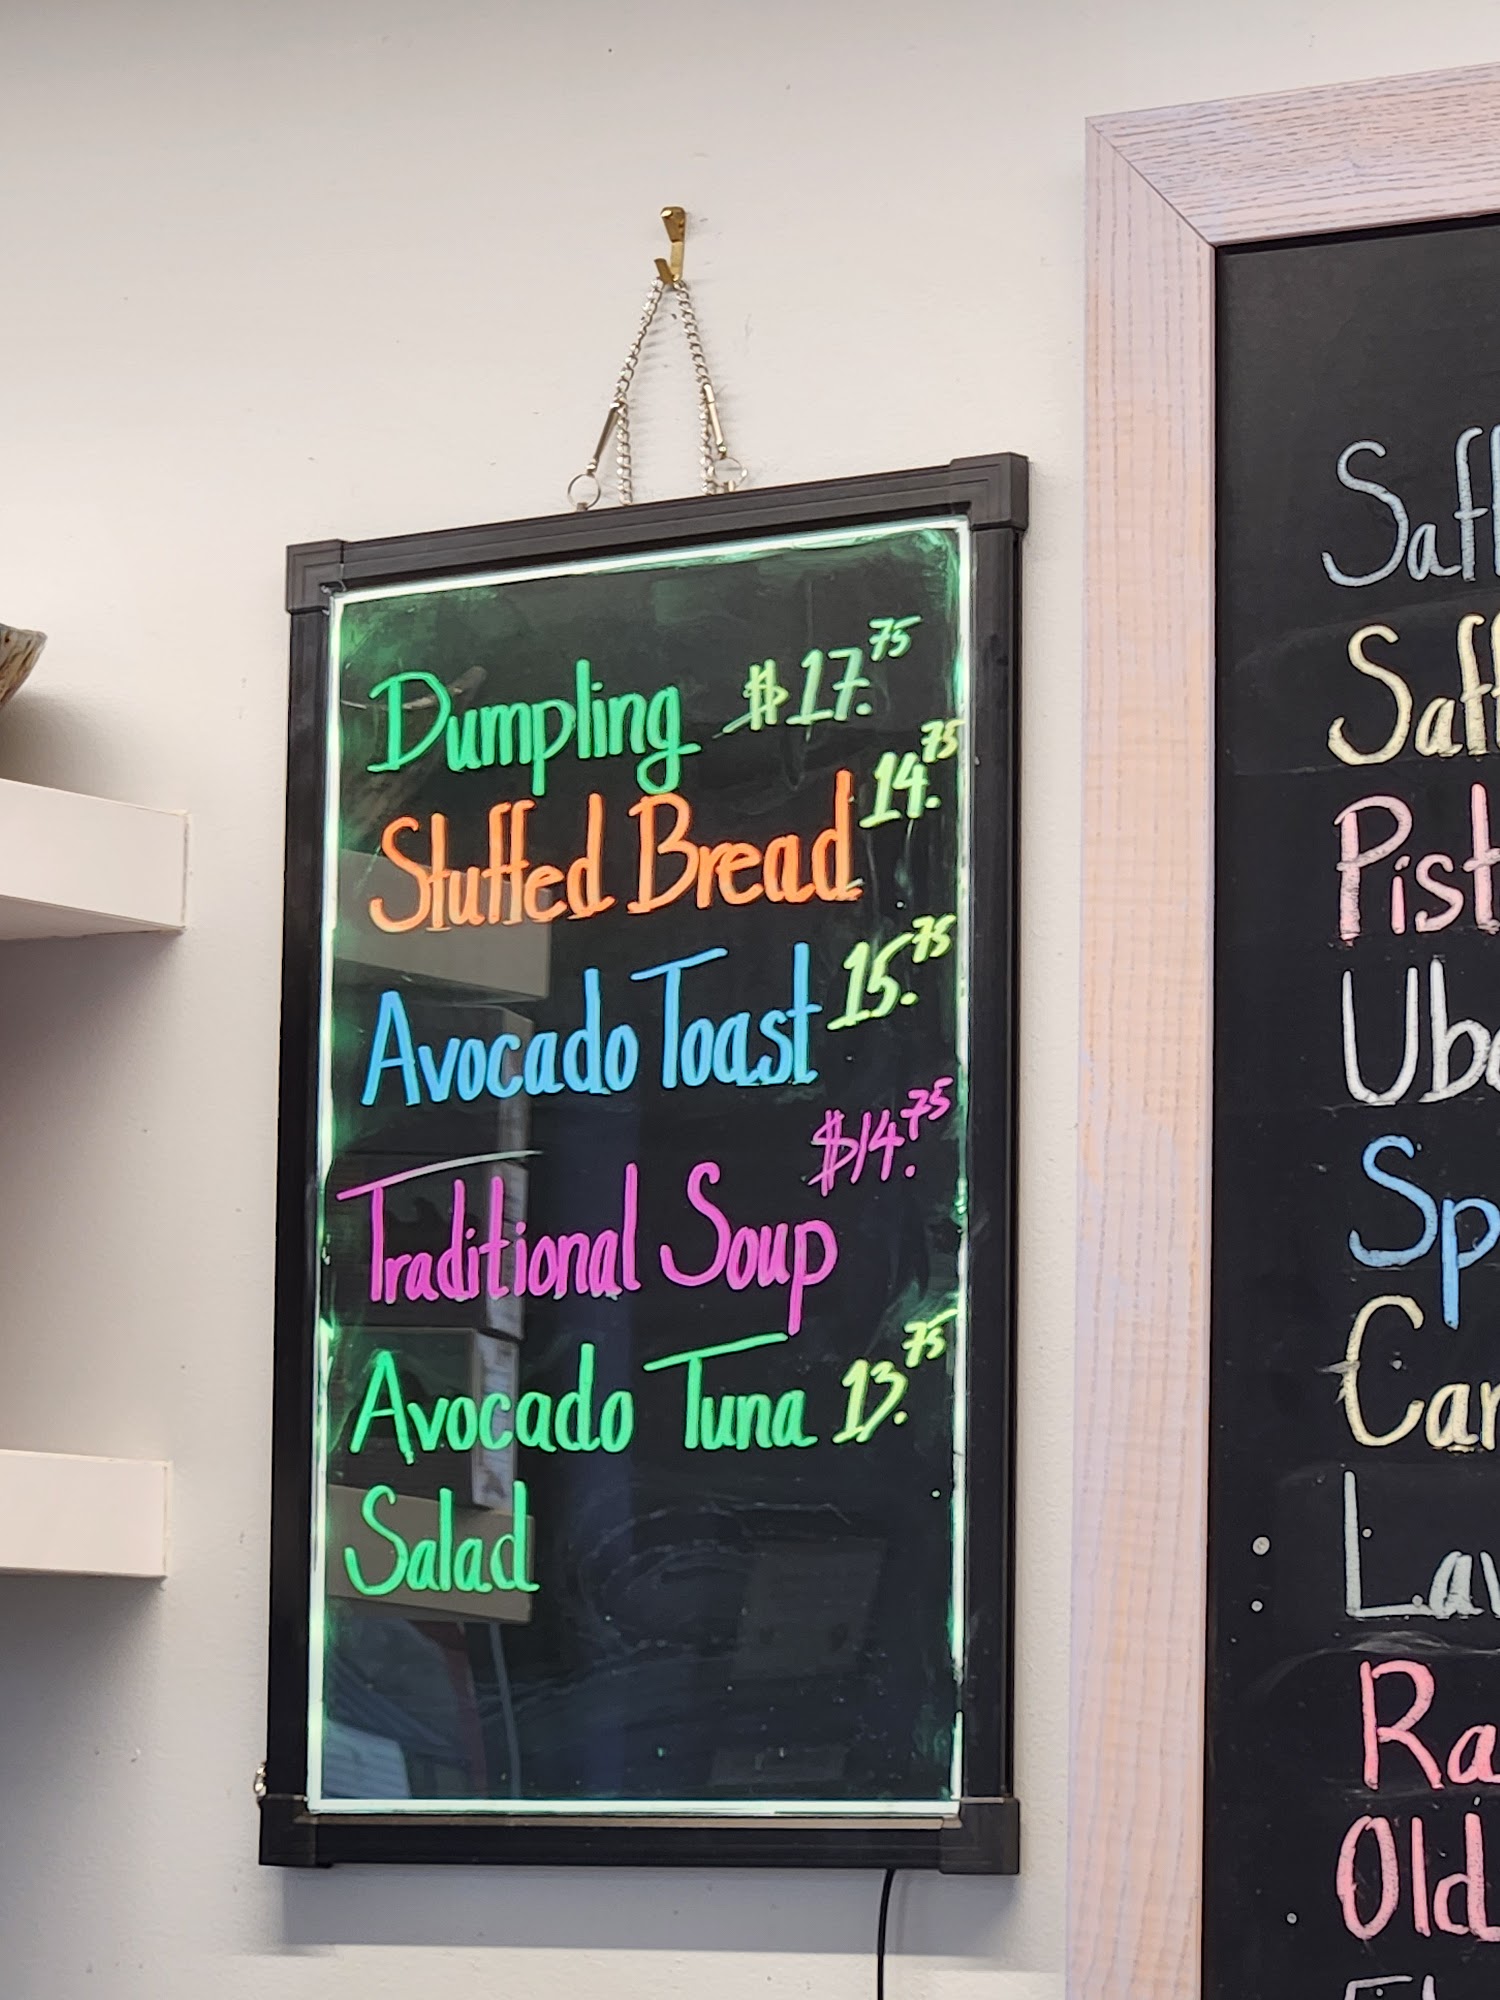 Dumpling $17.75
Stuffed Bread 14.75
Avocado Toast 15.75
$14.75
Traditional Soup
Avocado Tuna 13.75
Salad
Saff
Saff
Pist
Ube
Sp
Car
Lav
Ra
Old